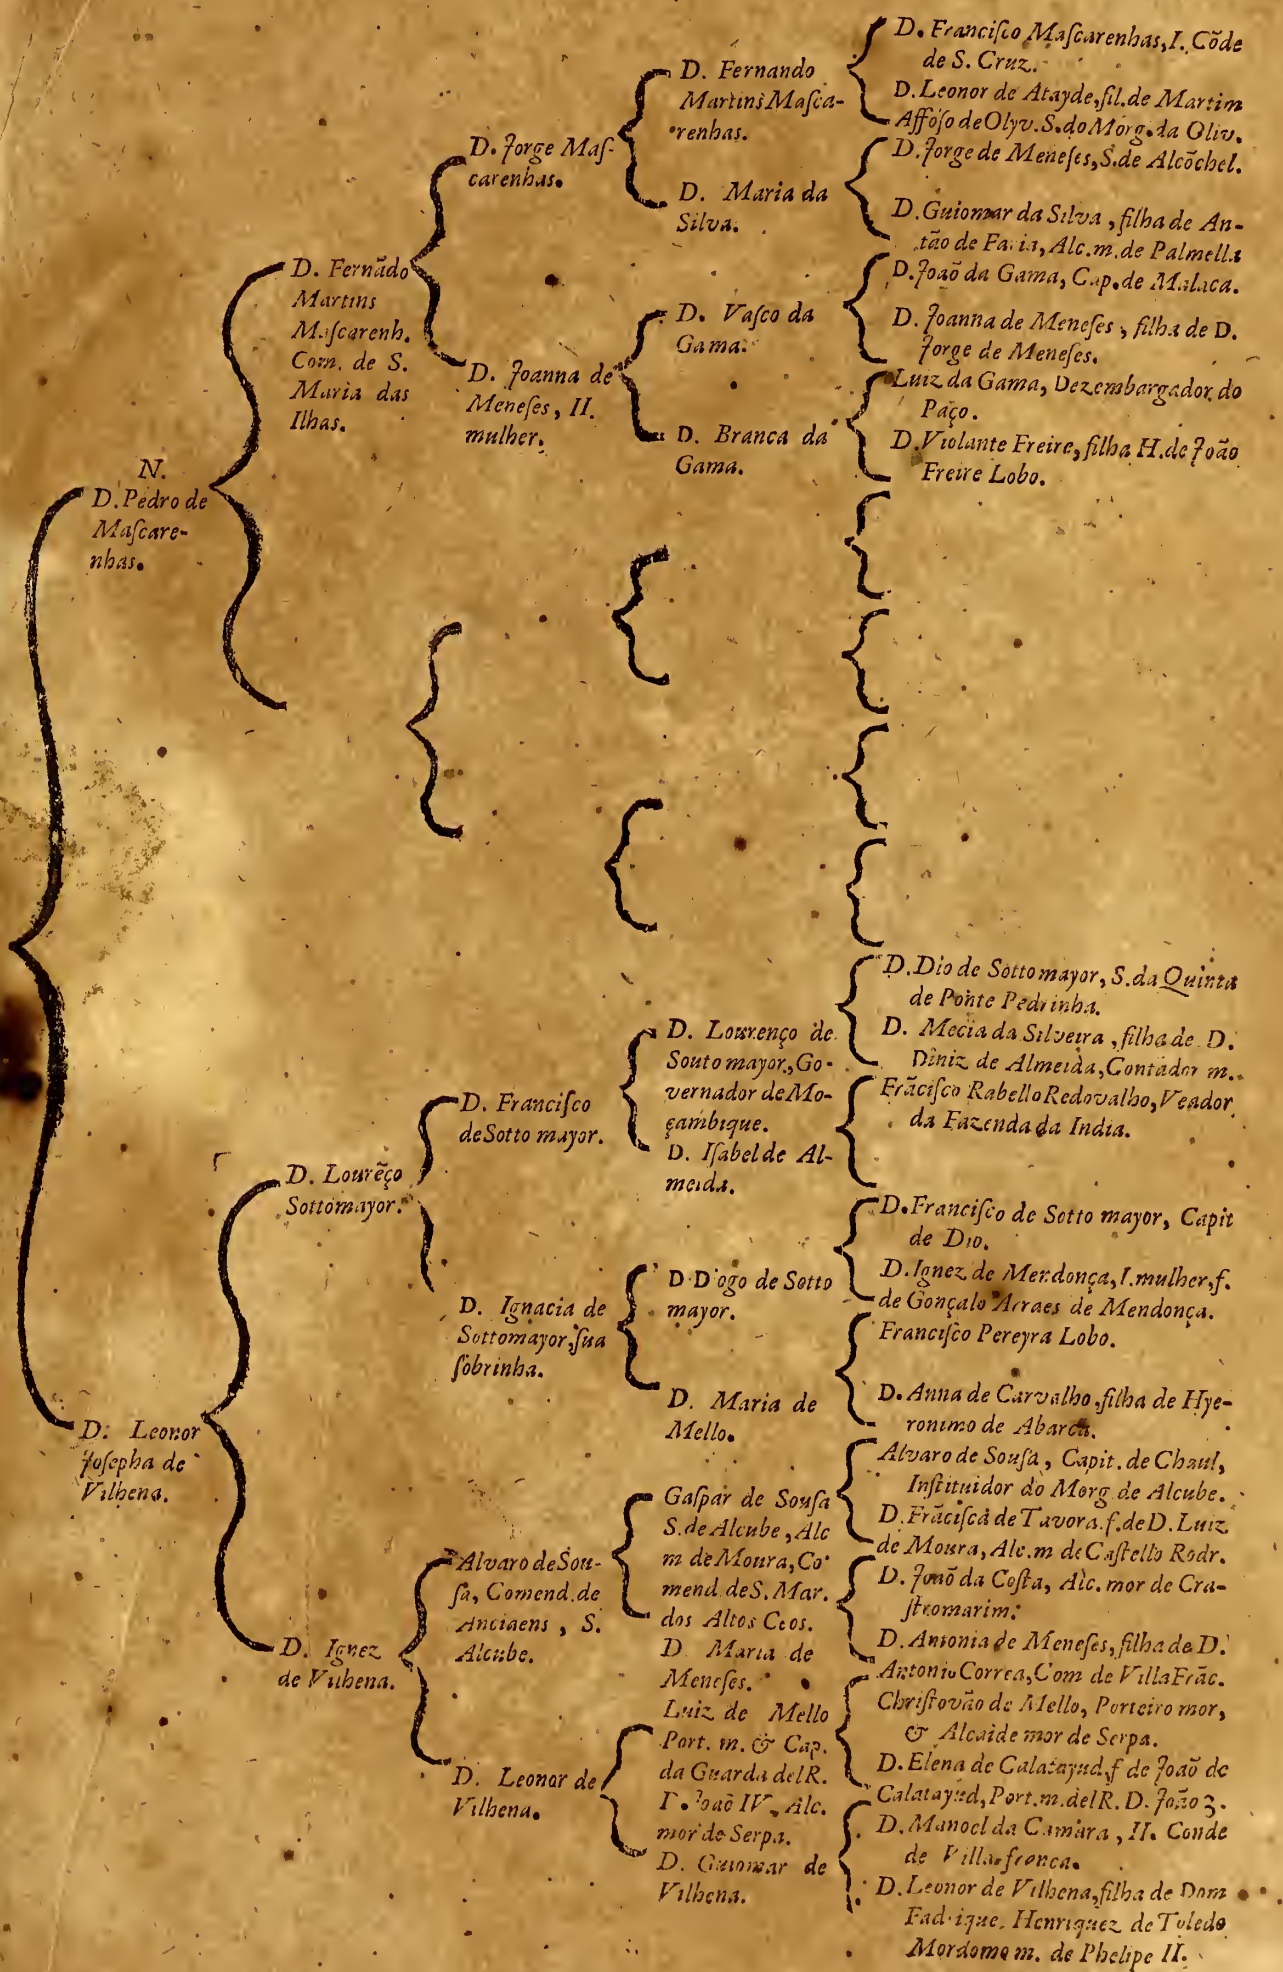 N.
D. Pedro de
Maſcare-
nhas.
D. Leonor
Joſepha de
Vilhena.
D. Fernãdo
Martins
Maſcarenh.
Com. de S.
Maria das
Ilhas.
D. Lourẽço
Sottomayor.
D. Ignez
de Vilhena.
D. Jorge Maſ-
carenhas.
D. Joanna de
Meneſes, II.
mulher.
D. Franciſco
de Sotto mayor.
D. Ignacia de
Sottomayor, ſua
ſobrinha.
Alvaro de Sou-
ſa, Comend. de
Anciaens, S.
Alcube.
D. Leonor de
Vilhena.
D. Fernando
Martins Maſca-
renhas.
D. Maria da
Silva.
D. Vaſco da
Gama.
D. Branca da
Gama.
D. Lourenço de
Souto mayor, Go-
vernador de Mo-
çambique.
D. Iſabel de Al-
meida.
D. D'ogo de Sotto
mayor.
D. Maria de
Mello.
Gaſpar de Souſa
S. de Alcube, Alc
m de Moura, Co
mend. de S. Mar.
dos Altos Ceos.
D. Maria de
Meneſes.
Luiz de Mello
Port. m. & Cap.
da Guarda delR.
Joaõ IV, Alc.
mor de Serpa.
D. Guiomar de
Vilhena.
D. Franciſco Maſcarenhas, I. Cõde
de S. Cruz.
D. Leonor de Atayde, fil. de Martim
Affõſo de Olyv. S. do Morg. da Oliv.
D. Jorge de Meneſes, S. de Alcõchel.
D. Guiomar da Silva, filha de An-
tão de Faria, Alc. m. de Palmella
D. Joaõ da Gama, Cap. de Malaca.
D. Joanna de Meneſes, filha de D.
Jorge de Meneſes.
Luiz da Gama, Dezembargador do
Paço.
D. Violante Freire, filha H. de João
Freire Lobo.
D. Dio de Sottomayor, S. da Quinta
de Ponte Pedrinha.
D. Mecia da Silveira, filha de D.
Diniz de Almeida, Contador m.
Frãciſco Rabello Redovalho, Veador
da Fazenda da India.
D. Franciſco de Sotto mayor, Capit
de Dio.
D. Ignez de Mendonça, I. mulher, f.
de Gonçalo Arraes de Mendonça.
Franciſco Pereyra Lobo.
D. Anna de Carvalho, filha de Hye-
ronimo de Abarca.
Alvaro de Souſa, Capit. de Chaul,
Inſtituidor do Morg. de Alcube.
D. Frãciſca de Tavora. f. de D. Luiz
de Moura, Alc. m de Caſtello Rodr.
D. Joaõ da Coſta, Alc. mor de Cra-
ſtromarim.
D. Antonia de Meneſes, filha de D.
Antonio Correa, Com de Villa Frãc.
Chriſtovão de Mello, Porteiro mor,
& Alcaide mor de Serpa.
D. Elena de Calatayud, f de Joaõ de
Calatayud, Port. m. delR. D. João 3.
D. Manoel da Camara, II. Conde
de Villa-franca.
D. Leonor de Vilhena, filha de Dom
Fad ique. Henriquez de Toledo
Mordomo m. de Phelipe II.